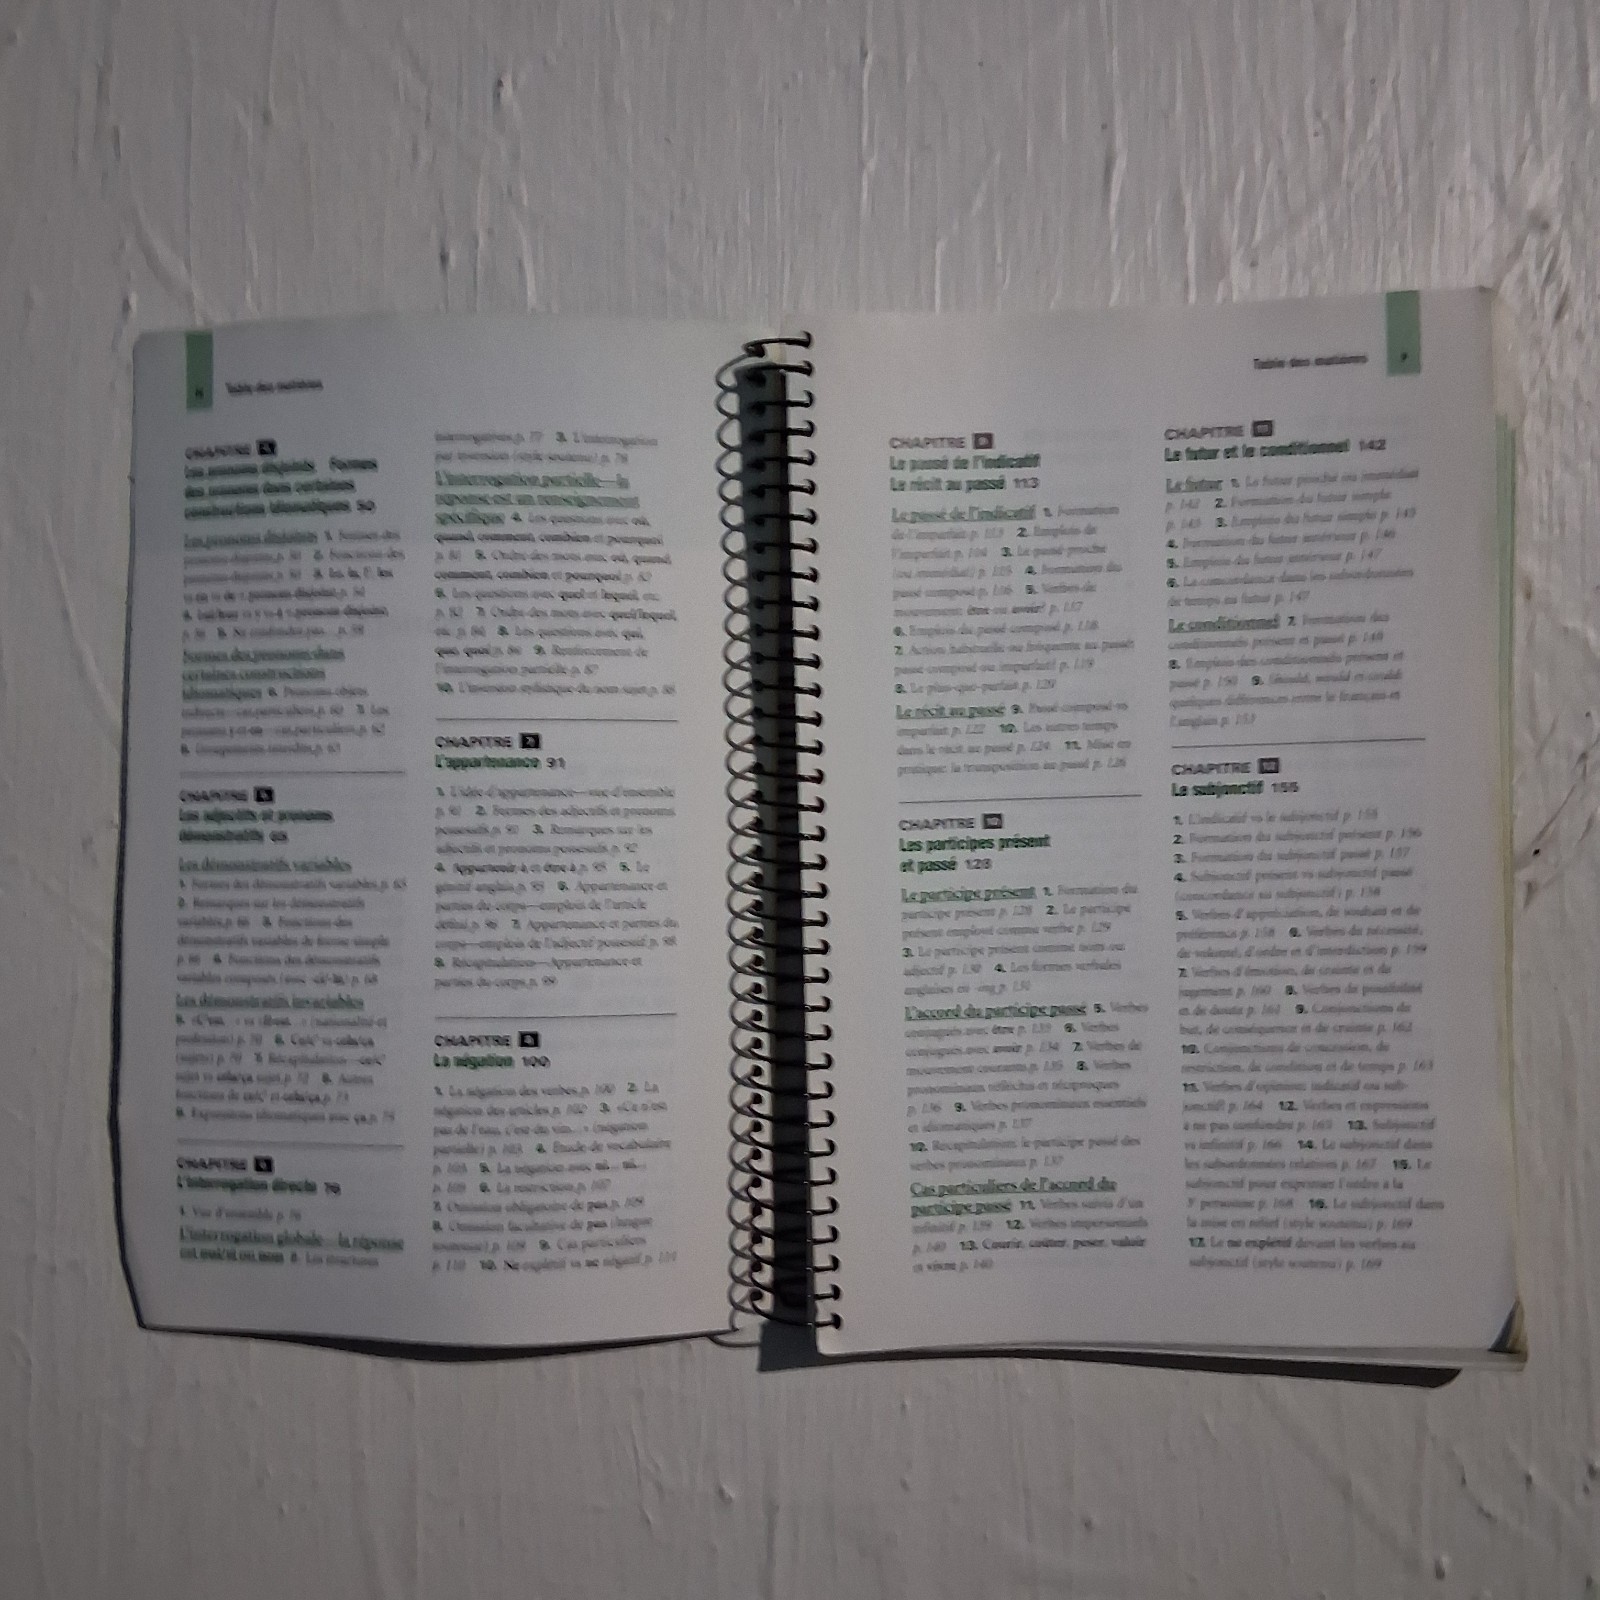 Table des matières
CHAPITRE 4
Les pronoms disjoints Formes
des pronoms dans certaines
constructions idiomatiques 50
Les pronoms disjoints 1. Formes des
pronoms disjoints p. 50 2. Fonctions des
pronoms disjoints p.
Formes des pronoms dans
certaines constructions
idiomatiques 6. Pronoms objets
indirects—cas particuliers p. 60 7. Les
pronoms y et en—cas particuliers p. 62
8. Groupements interdits p. 63
CHAPITRE 5
Les adjectifs et pronoms
démonstratifs 65
Les démonstratifs variables
1. Formes des démonstratifs variables p. 65
2. Remarques sur les démonstratifs
variables p. 66 3. Fonctions des
démonstratifs variables de forme simple
p. 66 4. Fonctions des démonstratifs
variables composés (avec -ci/-là) p. 68
Les démonstratifs invariables
9. Expressions idiomatiques avec ça p. 75
CHAPITRE 6
L'interrogation directe 76
1. Vue d'ensemble p. 76
L'interrogation globale—la réponse
est oui/si ou non 2. Les structures
interrogatives p. 77 3. L'interrogation
par inversion (style soutenu) p. 78
L'interrogation partielle—la
réponse est un renseignement
spécifique 4. Les questions avec où,
quand, comment, combien et pourquoi
p. 81 5. Ordre des mots avec où, quand,
comment, combien et pourquoi p. 82
6. Les questions avec quel et lequel, etc.
p. 82 7. Ordre des mots avec quel/lequel,
etc. p. 84 8. Les questions avec qui,
que, quoi p. 84 9. Renforcement de
l'interrogation partielle p. 87
10. L'inversion stylistique du nom sujet p. 88
CHAPITRE 7
L'appartenance 91
1. L'idée d'appartenance—vue d'ensemble
p. 91 2. Formes des adjectifs et pronoms
possessifs p. 91 3. Remarques sur les
adjectifs et pronoms possessifs p. 92
4. Appartenir à et être à p. 95 5. Le
génitif anglais p. 95 6. Appartenance et
parties du corps—emplois de l'article
défini p. 96 7. Appartenance et parties du
corps—emplois de l'adjectif possessif p. 98
8. Récapitulation—Appartenance et
parties du corps p. 99
CHAPITRE 8
La négation 100
1. La négation des verbes p. 100 2. La
négation des articles p. 102 3. «Ce n'est
pas de l'eau, c'est du vin...» (négation
partielle) p. 103 4. Étude de vocabulaire
p. 103 5. La négation avec ni... ni...
p. 105 6. La restriction p. 107
7. Omission obligatoire de pas p. 108
8. Omission facultative de pas (langue
soutenue) p. 109 9. Cas particuliers
p. 110 10. Ne explétif vs ne négatif p. 111
Table des matières
CHAPITRE 9
Le passé de l'indicatif
Le récit au passé 113
Le passé de l'indicatif 1. Formation
de l'imparfait p. 113 2. Emplois de
l'imparfait p. 114 3. Le passé proche
(ou immédiat) p. 115 4. Formation du
passé composé p. 116 5. Verbes de
mouvement: être ou avoir? p. 117
6. Emplois du passé composé p. 118
7. Action habituelle ou fréquente au passé:
passé composé ou imparfait? p. 119
8. Le plus-que-parfait p. 120
Le récit au passé 9. Passé composé vs
imparfait p. 122 10. Les autres temps
dans le récit au passé p. 124 11. Mise en
pratique: la transposition au passé p. 126
CHAPITRE 10
Les participes présent
et passé 128
Le participe présent 1. Formation du
participe présent p. 128 2. Le participe
présent employé comme verbe p. 129
3. Le participe présent comme nom ou
adjectif p. 130 4. Les formes verbales
anglaises en -ing p. 131
L'accord du participe passé 5. Verbes
conjugués avec être p. 133 6. Verbes
conjugués avec avoir p. 134 7. Verbes de
mouvement courants p. 135 8. Verbes
pronominaux réfléchis et réciproques
p. 136 9. Verbes pronominaux essentiels
et idiomatiques p. 137
10. Récapitulation: le participe passé des
verbes pronominaux p. 137
Cas particuliers de l'accord du
participe passé 11. Verbes suivis d'un
infinitif p. 139 12. Verbes impersonnels
p. 140 13. Courir, coûter, peser, valoir
et vivre p. 140
CHAPITRE 11
Le futur et le conditionnel 142
Le futur 1. Le futur proche ou immédiat
p. 142 2. Formation du futur simple
p. 143 3. Emplois du futur simple p. 145
4. Formation du futur antérieur p. 146
5. Emplois du futur antérieur p. 147
6. La concordance dans les subordonnées
de temps au futur p. 147
Le conditionnel 7. Formation des
conditionnels présent et passé p. 148
8. Emplois des conditionnels présent et
passé p. 150 9. Should, would et could:
quelques différences entre le français et
l'anglais p. 153
CHAPITRE 12
Le subjonctif 155
1. L'indicatif vs le subjonctif p. 155
2. Formation du subjonctif présent p. 156
3. Formation du subjonctif passé p. 157
4. Subjonctif présent vs subjonctif passé
(concordance au subjonctif) p. 158
5. Verbes d'appréciation, de souhait et de
préférence p. 158 6. Verbes de nécessité,
de volonté, d'ordre et d'interdiction p. 159
7. Verbes d'émotion, de crainte et de
jugement p. 160 8. Verbes de possibilité
et de doute p. 161 9. Conjonctions de
but, de conséquence et de crainte p. 162
10. Conjonctions de concession, de
restriction, de condition et de temps p. 163
11. Verbes d'opinion: indicatif ou sub-
jonctif? p. 164 12. Verbes et expressions
à ne pas confondre p. 165 13. Subjonctif
vs infinitif p. 166 14. Le subjonctif dans
les subordonnées relatives p. 167 15. Le
subjonctif pour exprimer l'ordre à la
3e personne p. 168 16. Le subjonctif dans
la mise en relief (style soutenu) p. 169
17. Le ne explétif devant les verbes au
subjonctif (style soutenu) p. 169